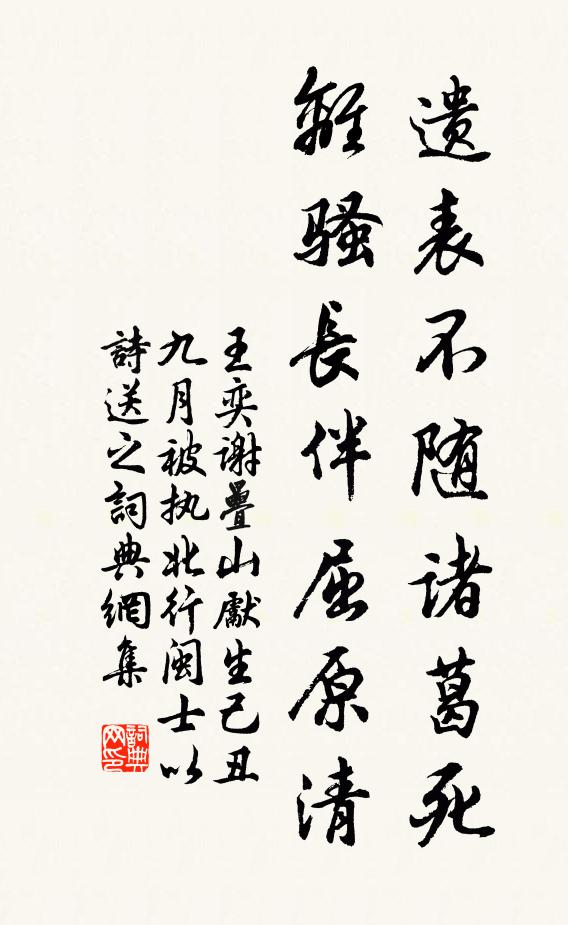 遗表不随诸葛死
離骚長伴屈原清
王奕谢疊山獻生己丑
九月被执北行闽士以
詩送之詞典網集
詞典
网印